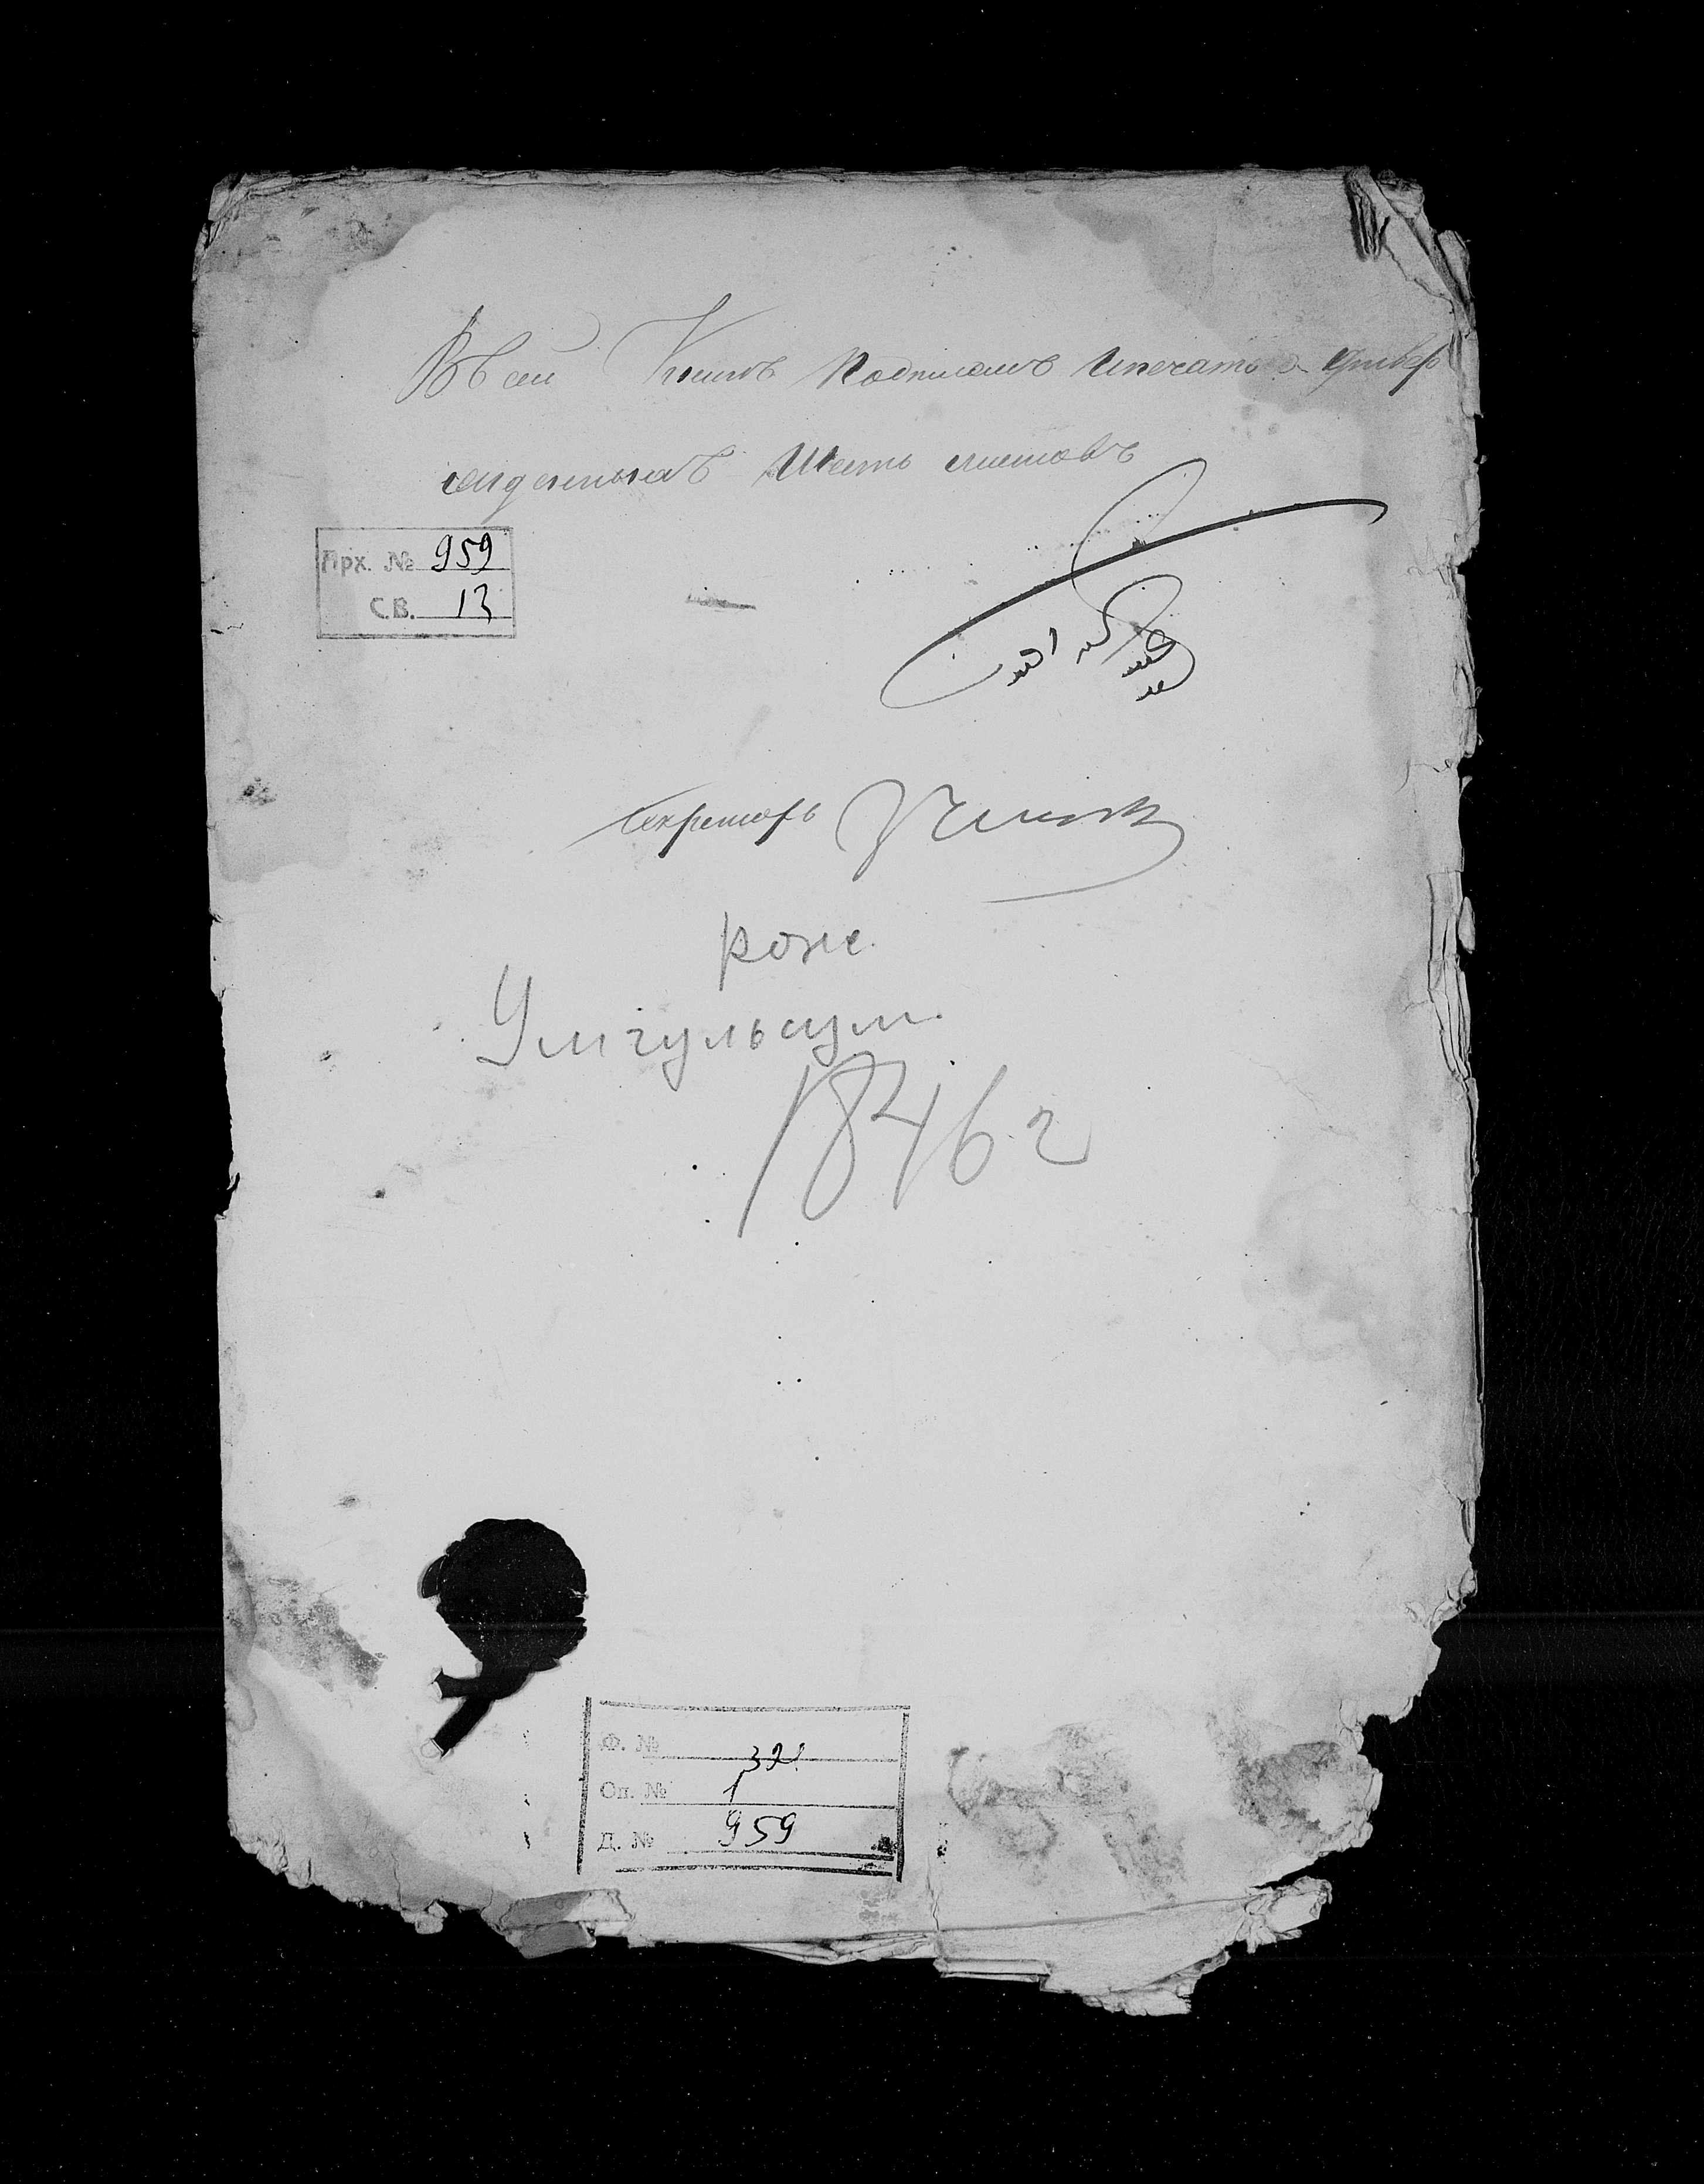 Въ сей Книгѣ подписомъ ипечатью Утвер
жденныхъ Шесть листовъ
Арх. № 959
С.В. 13
Секретарь
рож.
Умгульсум.
1846 г
Ф. № 321
Оп. № 1
Д. № 959